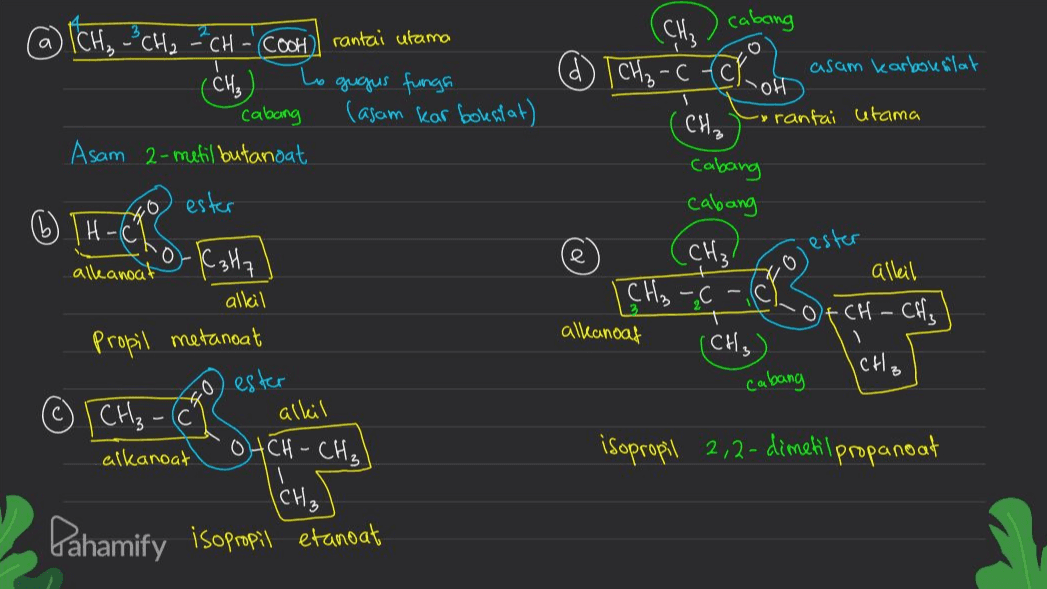 a 4 CH3 - 3 CH2 - 2 CH - 1 COOH rantai utama
CH3 ↳ gugus fungsi
cabang (asam karboksilat)
Asam 2-metil butanoat
b ester
H - C O
O - C3H7
alkanoat
alkil
Propil metanoat
c ester
CH3 - C O alkil
alkanoat O - CH - CH3
CH3
isopropil etanoat
CH3 cabang
d CH3 - C - C O OH asam karboksilat
CH3 rantai utama
cabang
cabang
e CH3 ester
CH3 - C - C O alkil
3 2 1 O - CH - CH3
alkanoat CH3 CH3
cabang
isopropil 2,2-dimetil propanoat
Pahamify